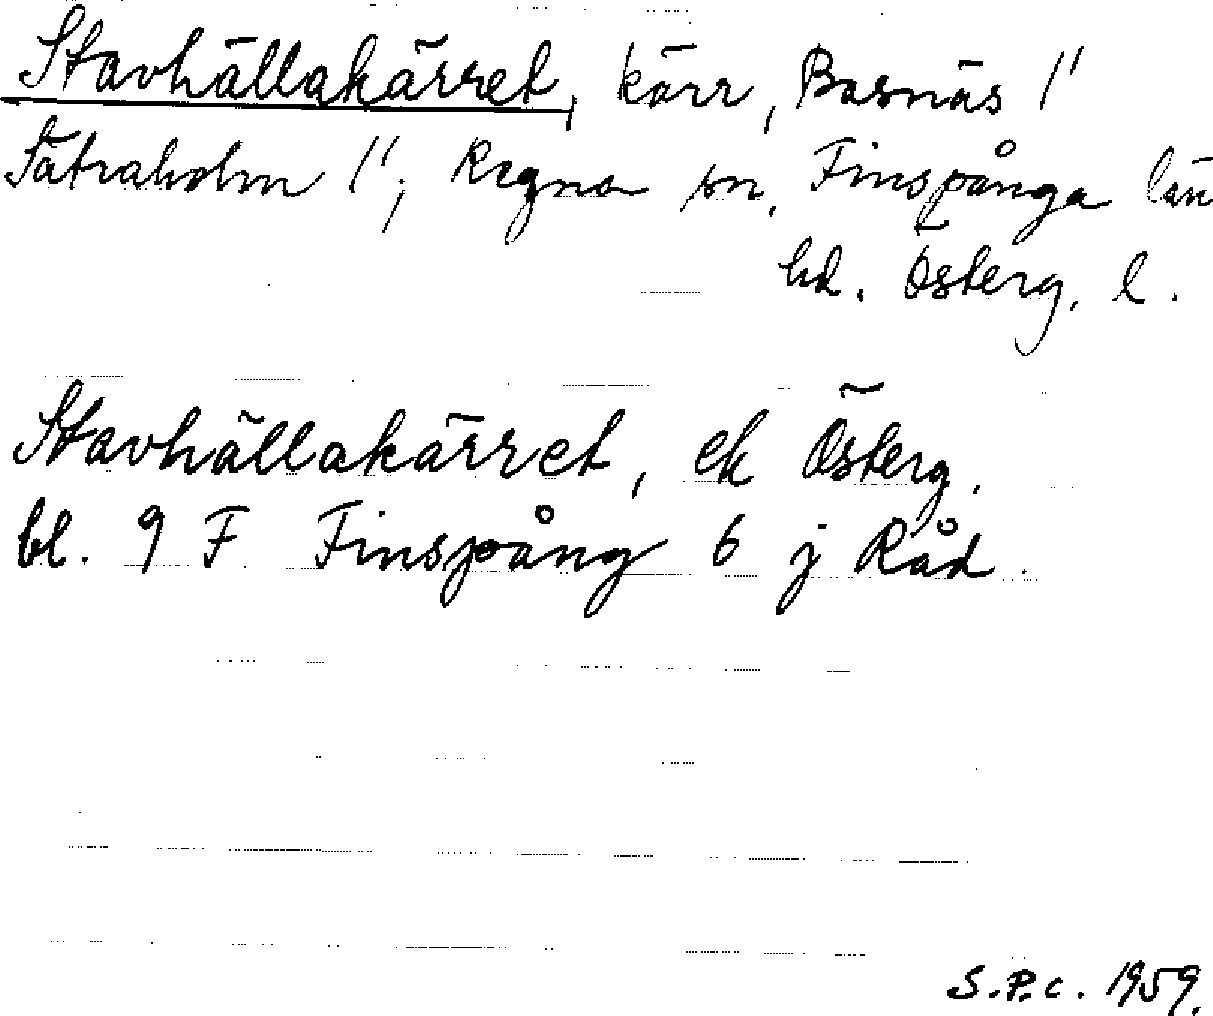 Stavhällakärret, kärr, Basnäs 1'
Sätraholm 1', Regna sn, Finspånga län
hd. Österg. l.
Stavhällakärret, ek Österg.
bl. 9 F Finspång 6 j Råd
S.P.c. 1959.